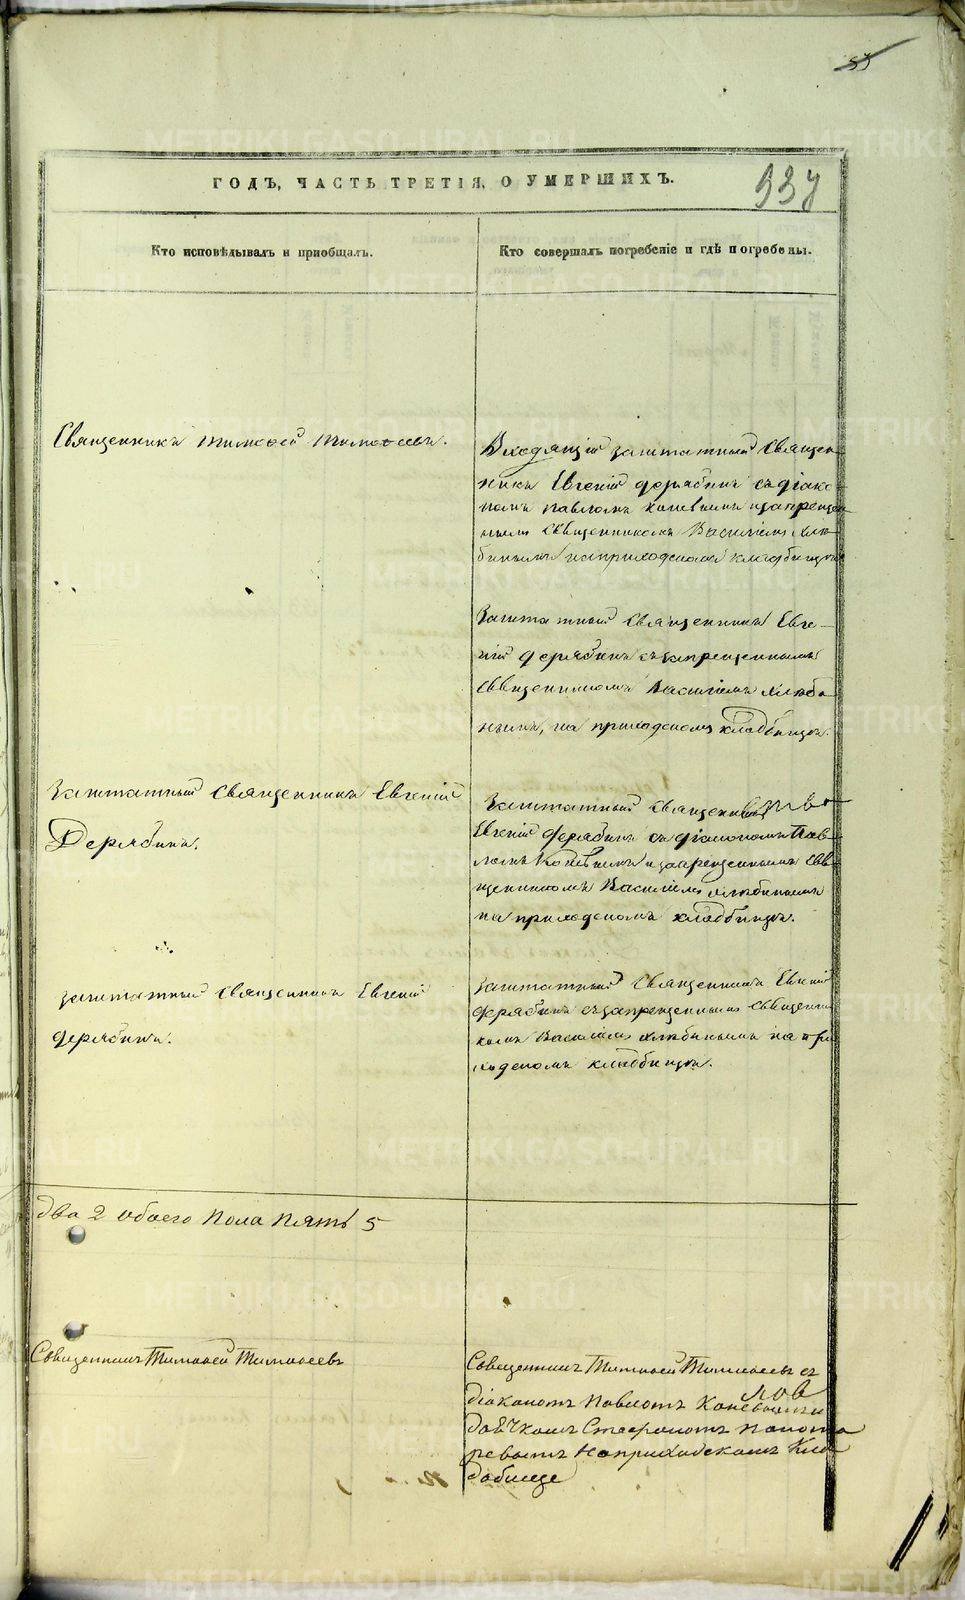 55
ГОДЪ, ЧАСТЬ ТРЕТІЯ, О УМЕРШИХЪ.
Кто исповѣдывалъ и пріобщалъ.
Кто совершалъ погребеніе и гдѣ погребены.
Священникъ Тимоѳей Тимоѳеевъ.
Входящій заштатный Священ-
никъ Евгеній Дерябинъ съ діако-
номъ Павломъ Коневымъ и запрещен
нымъ Священникомъ Василіемъ
на приходскомъ кладбищѣ
Заштатный Священникъ Евге-
ній Дерябинъ съ запрещеннымъ
Священникомъ Василіемъ
на приходскомъ кладбищѣ.
Заштатный Священникъ Евгеній
Дерябинъ.
Заштатный Священникъ
Евгеній Дерябинъ съ діакономъ Пав-
ломъ Коневымъ и запрещеннымъ Свя
щенникомъ Василіемъ
на приходскомъ кладбищѣ.
Заштатный Священникъ Евгеній
Дерябинъ.
Заштатный Священникъ Евгеній
Дерябинъ съ запрещеннымъ Священни
комъ Василіемъ на при
ходскомъ кладбищѣ.
два 2 обоего пола пять 5
Священникъ Тимоѳей Тимоѳеевъ
Священникъ Тимоѳей Тимоѳеевъ съ
діакономъ Павломъ
дьячкомъ Стефаномъ Понома
ревымъ на приходскомъ Кла
дбище
METRIKI.GASO-URAL.RU